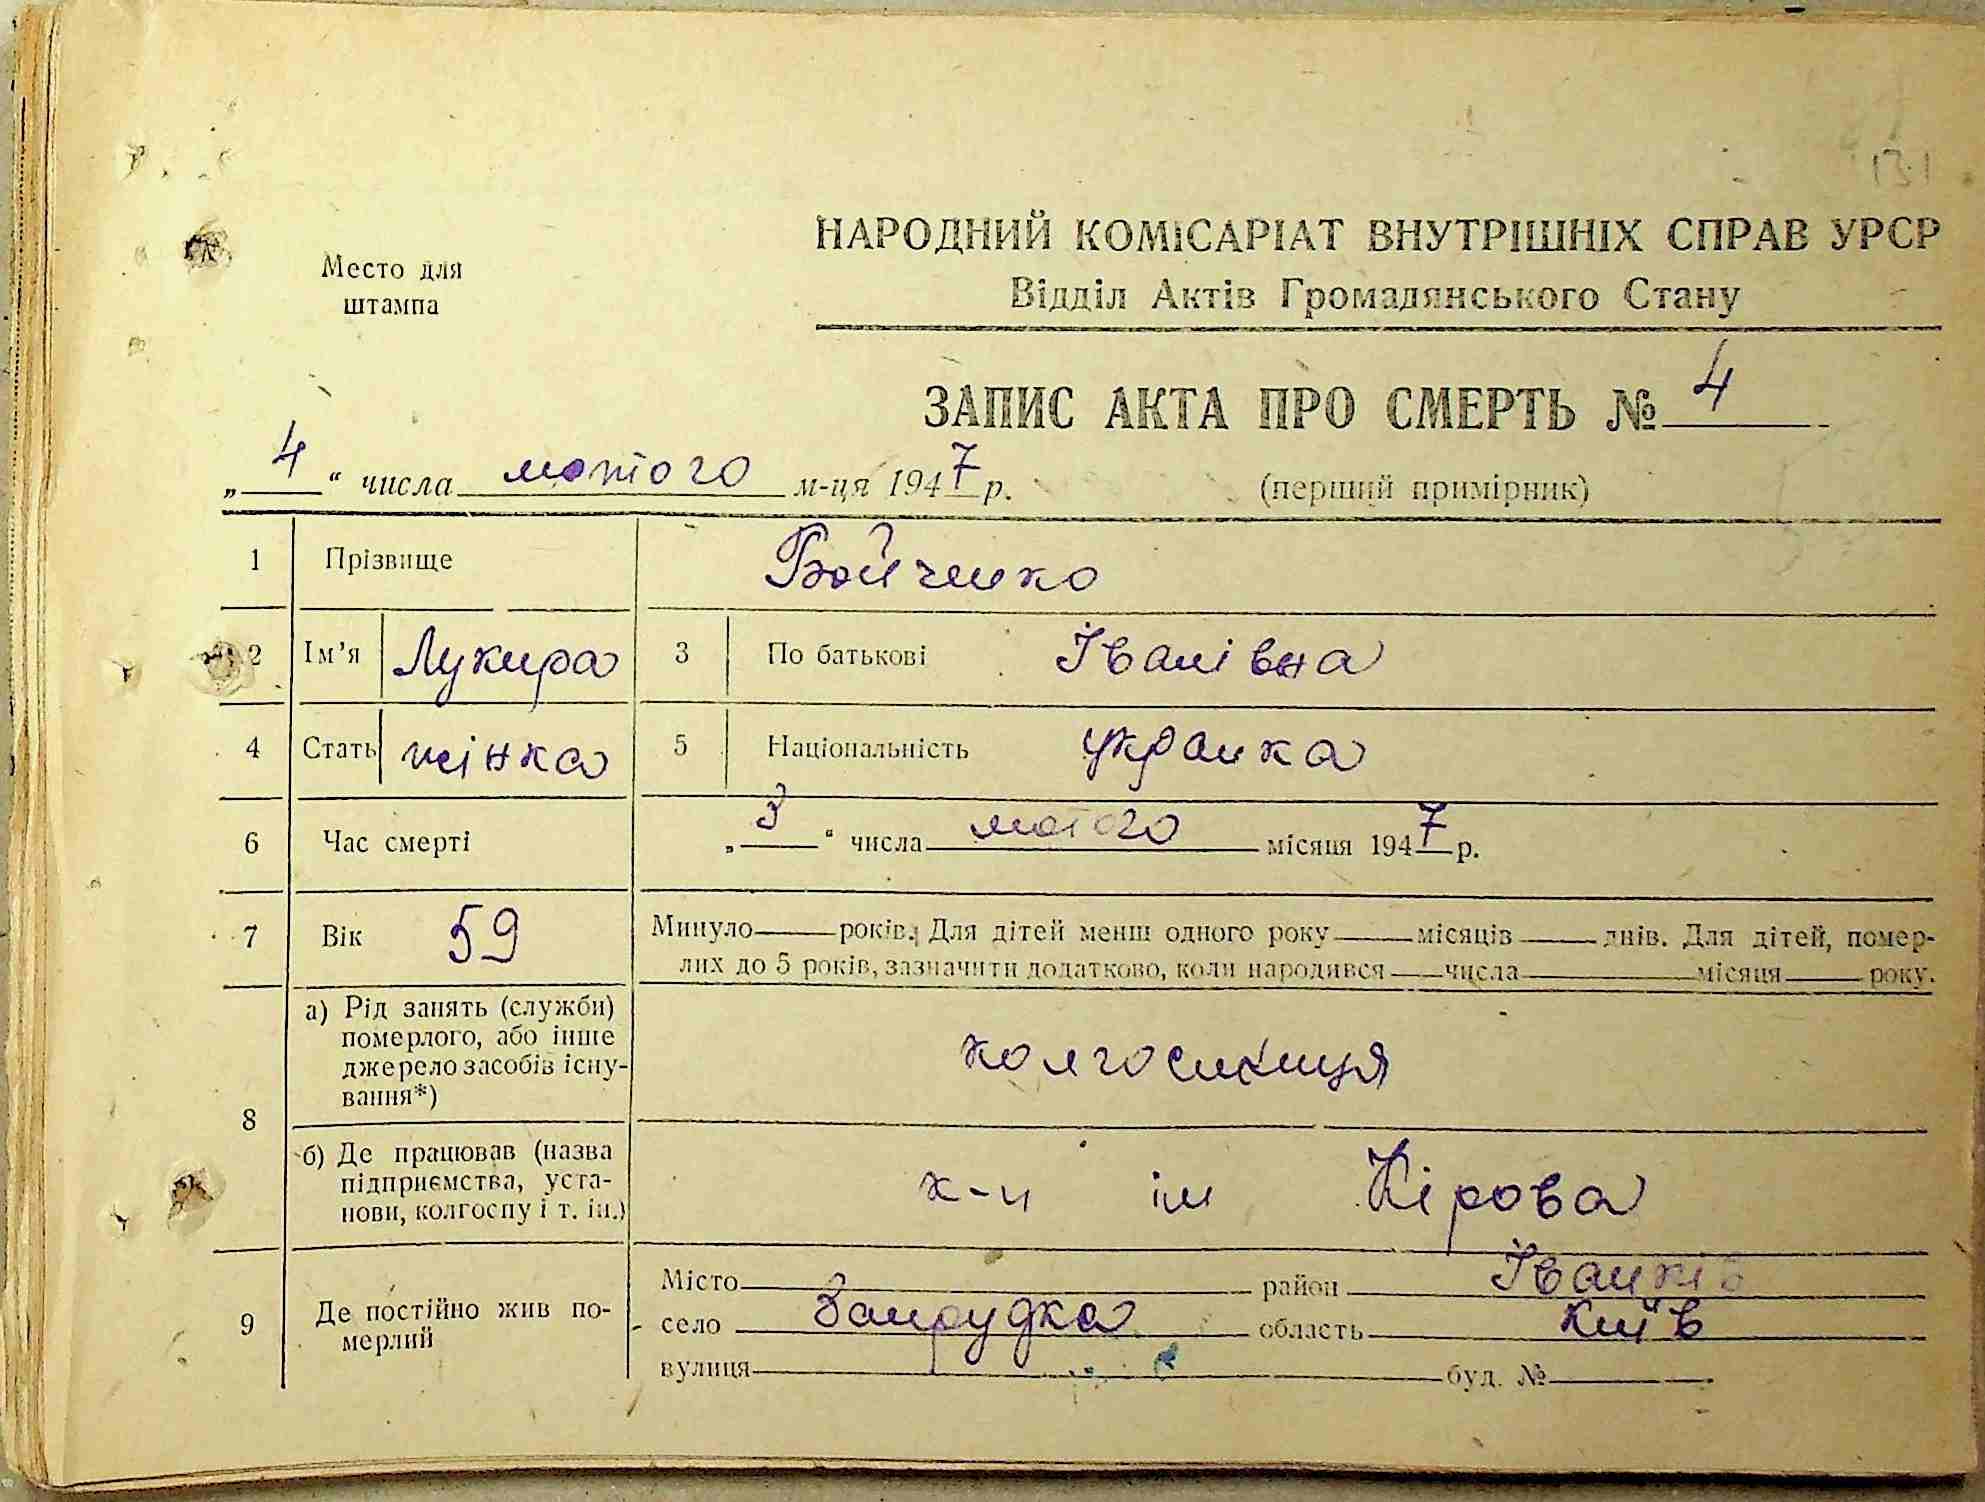 131
НАРОДНИЙ КОМІСАРІАТ ВНУТРІШНІХ СПРАВ УРСР
Место для
штампа
Відділ Актів Громадянського Стану
ЗАПИС АКТА ПРО СМЕРТЬ № 4
„ 4 “ числа лютого м-ця 1947 р. (перший примірник)
1 Прізвище Бойченко
2 Ім’я Лукира 3 По батькові Іванівна
4 Стать жінка 5 Національність українка
6 Час смерті „ 3 “ числа лютого місяця 1947 р.
7 Вік 59 Минуло ___ років. Для дітей менш одного року ___ місяців ___ днів. Для дітей, помер-
лих до 5 років, зазначити додатково, коли народився ___ числа ___ місяця ___ року.
8 а) Рід занять (служби)
померлого, або інше
джерело засобів існу-
вання*)
колгоспниця
б) Де працював (назва
підприємства, уста-
нови, колгоспу і т. ін.)
к-п ім Кірова
9 Де постійно жив по-
мерлий
Місто ___ район Іванків
село Запрудка область Київ
вулиця ___ буд. № ___